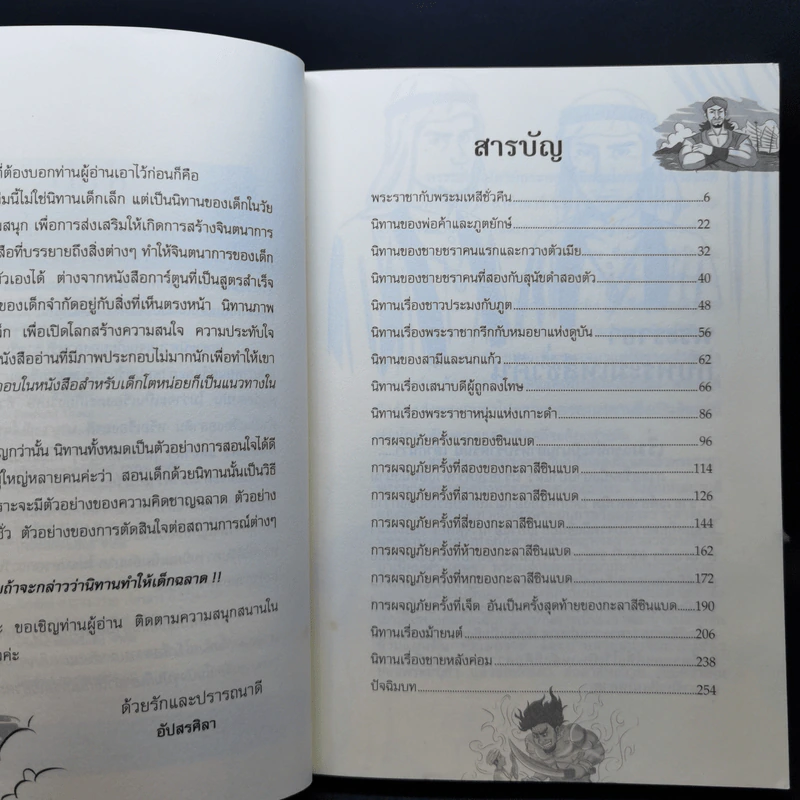 ที่ต้องบอกท่านผู้อ่านเอาไว้ก่อนก็คือ
มนี้ไม่ใช่นิทานเด็กเล็ก แต่เป็นนิทานของเด็กในวัย
สนุก เพื่อการส่งเสริมให้เกิดการสร้างจินตนาการ
สือที่บรรยายถึงสิ่งต่างๆ ทำให้จินตนาการของเด็ก
ัวเองได้ ต่างจากหนังสือการ์ตูนที่เป็นสูตรสำเร็จ
ของเด็กจำกัดอยู่กับสิ่งที่เห็นตรงหน้า นิทานภาพ
ัก เพื่อเปิดโลกสร้างความสนใจ ความประทับใจ
นังสืออ่านที่มีภาพประกอบไม่มากนักเพื่อทำให้เขา
อบในหนังสือสำหรับเด็กโตหน่อยก็เป็นแนวทางใน
ญกว่านั้น นิทานทั้งหมดเป็นตัวอย่างการสอนใจได้ดี
ู้ใหญ่หลายคนค่ะว่า สอนเด็กด้วยนิทานนั้นเป็นวิธี
ราะจะมีตัวอย่างของความคิดชาญฉลาด ตัวอย่าง
ชั่ว ตัวอย่างของการตัดสินใจต่อสถานการณ์ต่างๆ
ยถ้าจะกล่าวว่านิทานทำให้เด็กฉลาด !!
ะ ขอเชิญท่านผู้อ่าน ติดตามความสนุกสนานใน
งค่ะ
ด้วยรักและปรารถนาดี
อัปสรศิลา
สารบัญ
พระราชากับพระมเหสีชั่วคืน 6
นิทานของพ่อค้าและภูตยักษ์ 22
นิทานของชายชราคนแรกและกวางตัวเมีย 32
นิทานของชายชราคนที่สองกับสุนัขดำสองตัว 40
นิทานเรื่องชาวประมงกับภูต 48
นิทานเรื่องพระราชากรีกกับหมอยาแห่งดูบัน 56
นิทานของสามีและนกแก้ว 62
นิทานเรื่องเสนาบดีผู้ถูกลงโทษ 66
นิทานเรื่องพระราชาหนุ่มแห่งเกาะดำ 86
การผจญภัยครั้งแรกของซินแบด 96
การผจญภัยครั้งที่สองของกะลาสีซินแบด 114
การผจญภัยครั้งที่สามของกะลาสีซินแบด 126
การผจญภัยครั้งที่สี่ของกะลาสีซินแบด 144
การผจญภัยครั้งที่ห้าของกะลาสีซินแบด 162
การผจญภัยครั้งที่หกของกะลาสีซินแบด 172
การผจญภัยครั้งที่เจ็ด อันเป็นครั้งสุดท้ายของกะลาสีซินแบด 190
นิทานเรื่องม้ายนต์ 206
นิทานเรื่องชายหลังค่อม 238
ปัจฉิมบท 254